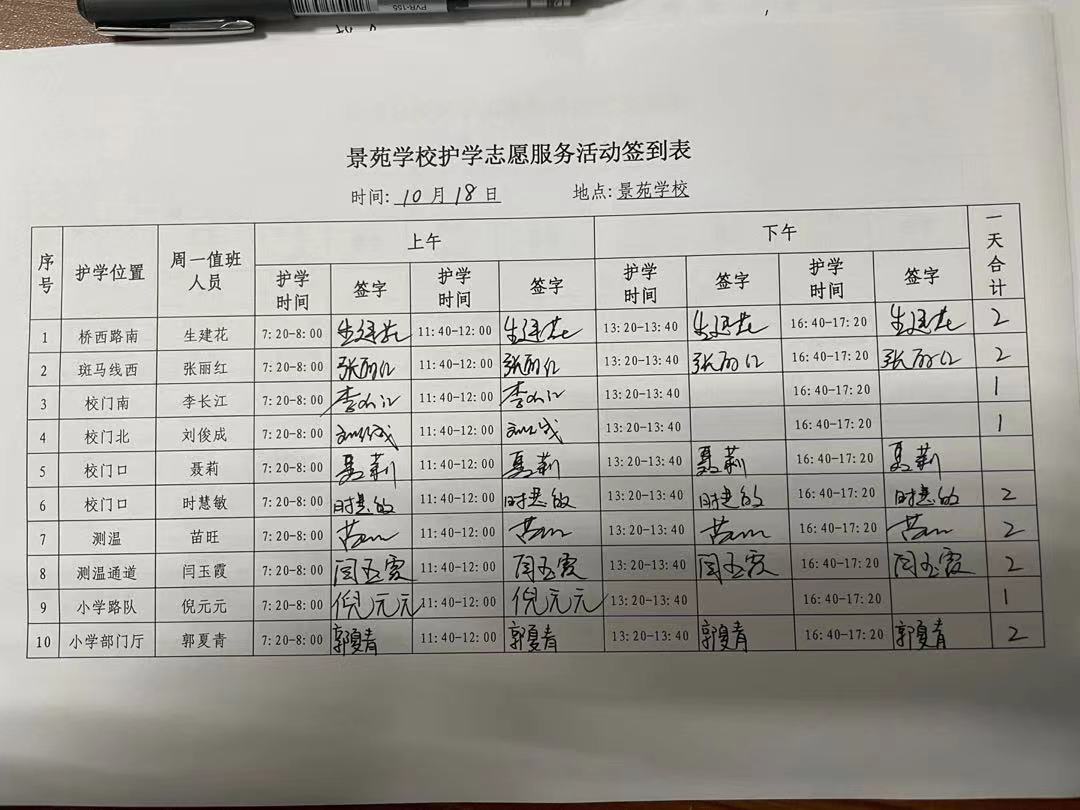 PVR-155
景苑学校护学志愿服务活动签到表
时间: 10 月 18 日 地点: 景苑学校
序号 护学位置 周一值班人员 上午 下午 一天合计
护学时间 签字 护学时间 签字 护学时间 签字 护学时间 签字
1 桥西路南 生建花 7:20-8:00 生建花 11:40-12:00 生建花 13:20-13:40 生建花 16:40-17:20 生建花 2
2 斑马线西 张丽红 7:20-8:00 张丽红 11:40-12:00 张丽红 13:20-13:40 张丽红 16:40-17:20 张丽红 2
3 校门南 李长江 7:20-8:00 李长江 11:40-12:00 李长江 13:20-13:40 16:40-17:20 1
4 校门北 刘俊成 7:20-8:00 刘俊成 11:40-12:00 刘俊成 13:20-13:40 16:40-17:20 1
5 校门口 聂莉 7:20-8:00 聂莉 11:40-12:00 聂莉 13:20-13:40 聂莉 16:40-17:20 聂莉
6 校门口 时慧敏 7:20-8:00 时慧敏 11:40-12:00 时慧敏 13:20-13:40 时慧敏 16:40-17:20 时慧敏 2
7 测温 苗旺 7:20-8:00 苗旺 11:40-12:00 苗旺 13:20-13:40 苗旺 16:40-17:20 苗旺 2
8 测温通道 闫玉霞 7:20-8:00 闫玉霞 11:40-12:00 闫玉霞 13:20-13:40 闫玉霞 16:40-17:20 闫玉霞 2
9 小学路队 倪元元 7:20-8:00 倪元元 11:40-12:00 倪元元 13:20-13:40 16:40-17:20 1
10 小学部门厅 郭夏青 7:20-8:00 郭夏青 11:40-12:00 郭夏青 13:20-13:40 郭夏青 16:40-17:20 郭夏青 2